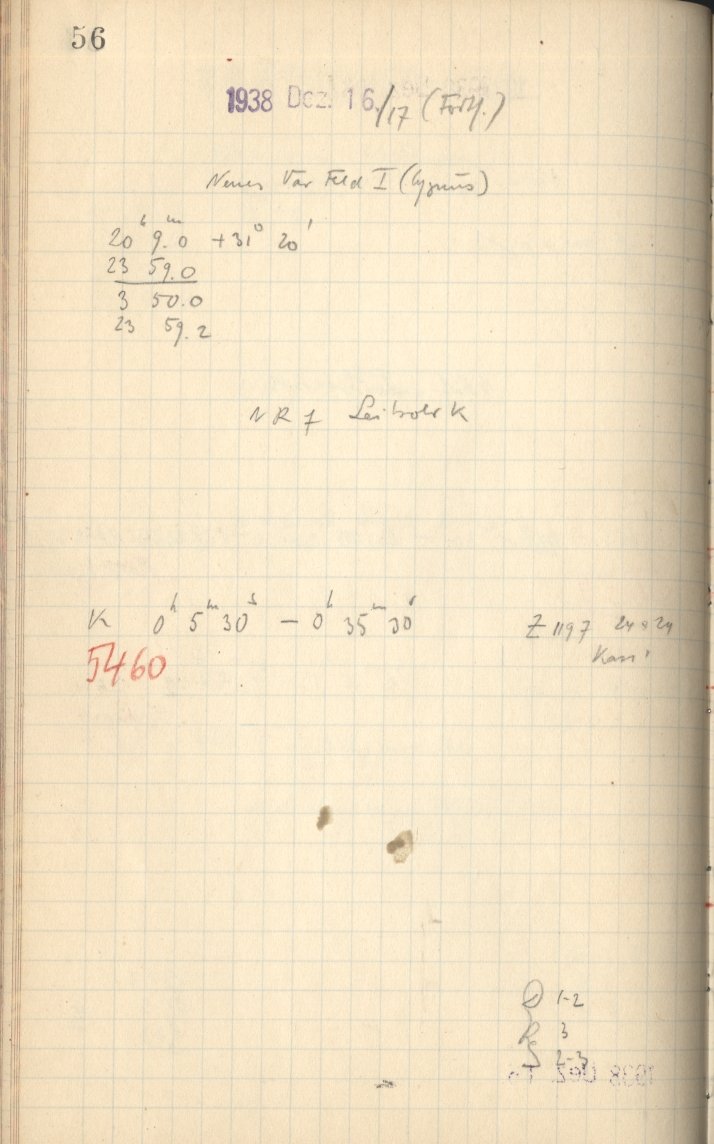 56
1938 Dez. 16./17 (Forts.)
Neues Var Feld I (Cygnus)
20ʰ 9.ᵐ0 +31° 20'
23 59.0
3 50.0
23 59.2
NR 7 Leitrohr K
K 0ʰ 5ᵐ 30ˢ – 0ʰ 35ᵐ 30ˢ Z 1197 24 × 24
5460
D 1-2
R 3
S 2-3